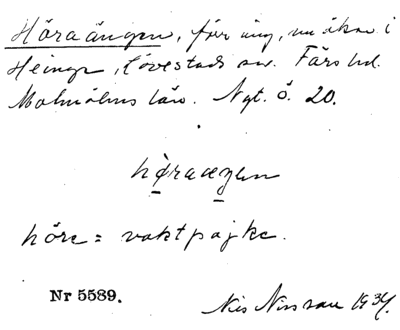 Höraängen, förr äng, nu åkrar i
Heinge, Lövestads sn. Färs hd.
Malmöhus län. Nyt. ö. 20.
höraæŋen
höre = vaktpojke.
Nr 5589.
Nils Nilsson 1934.